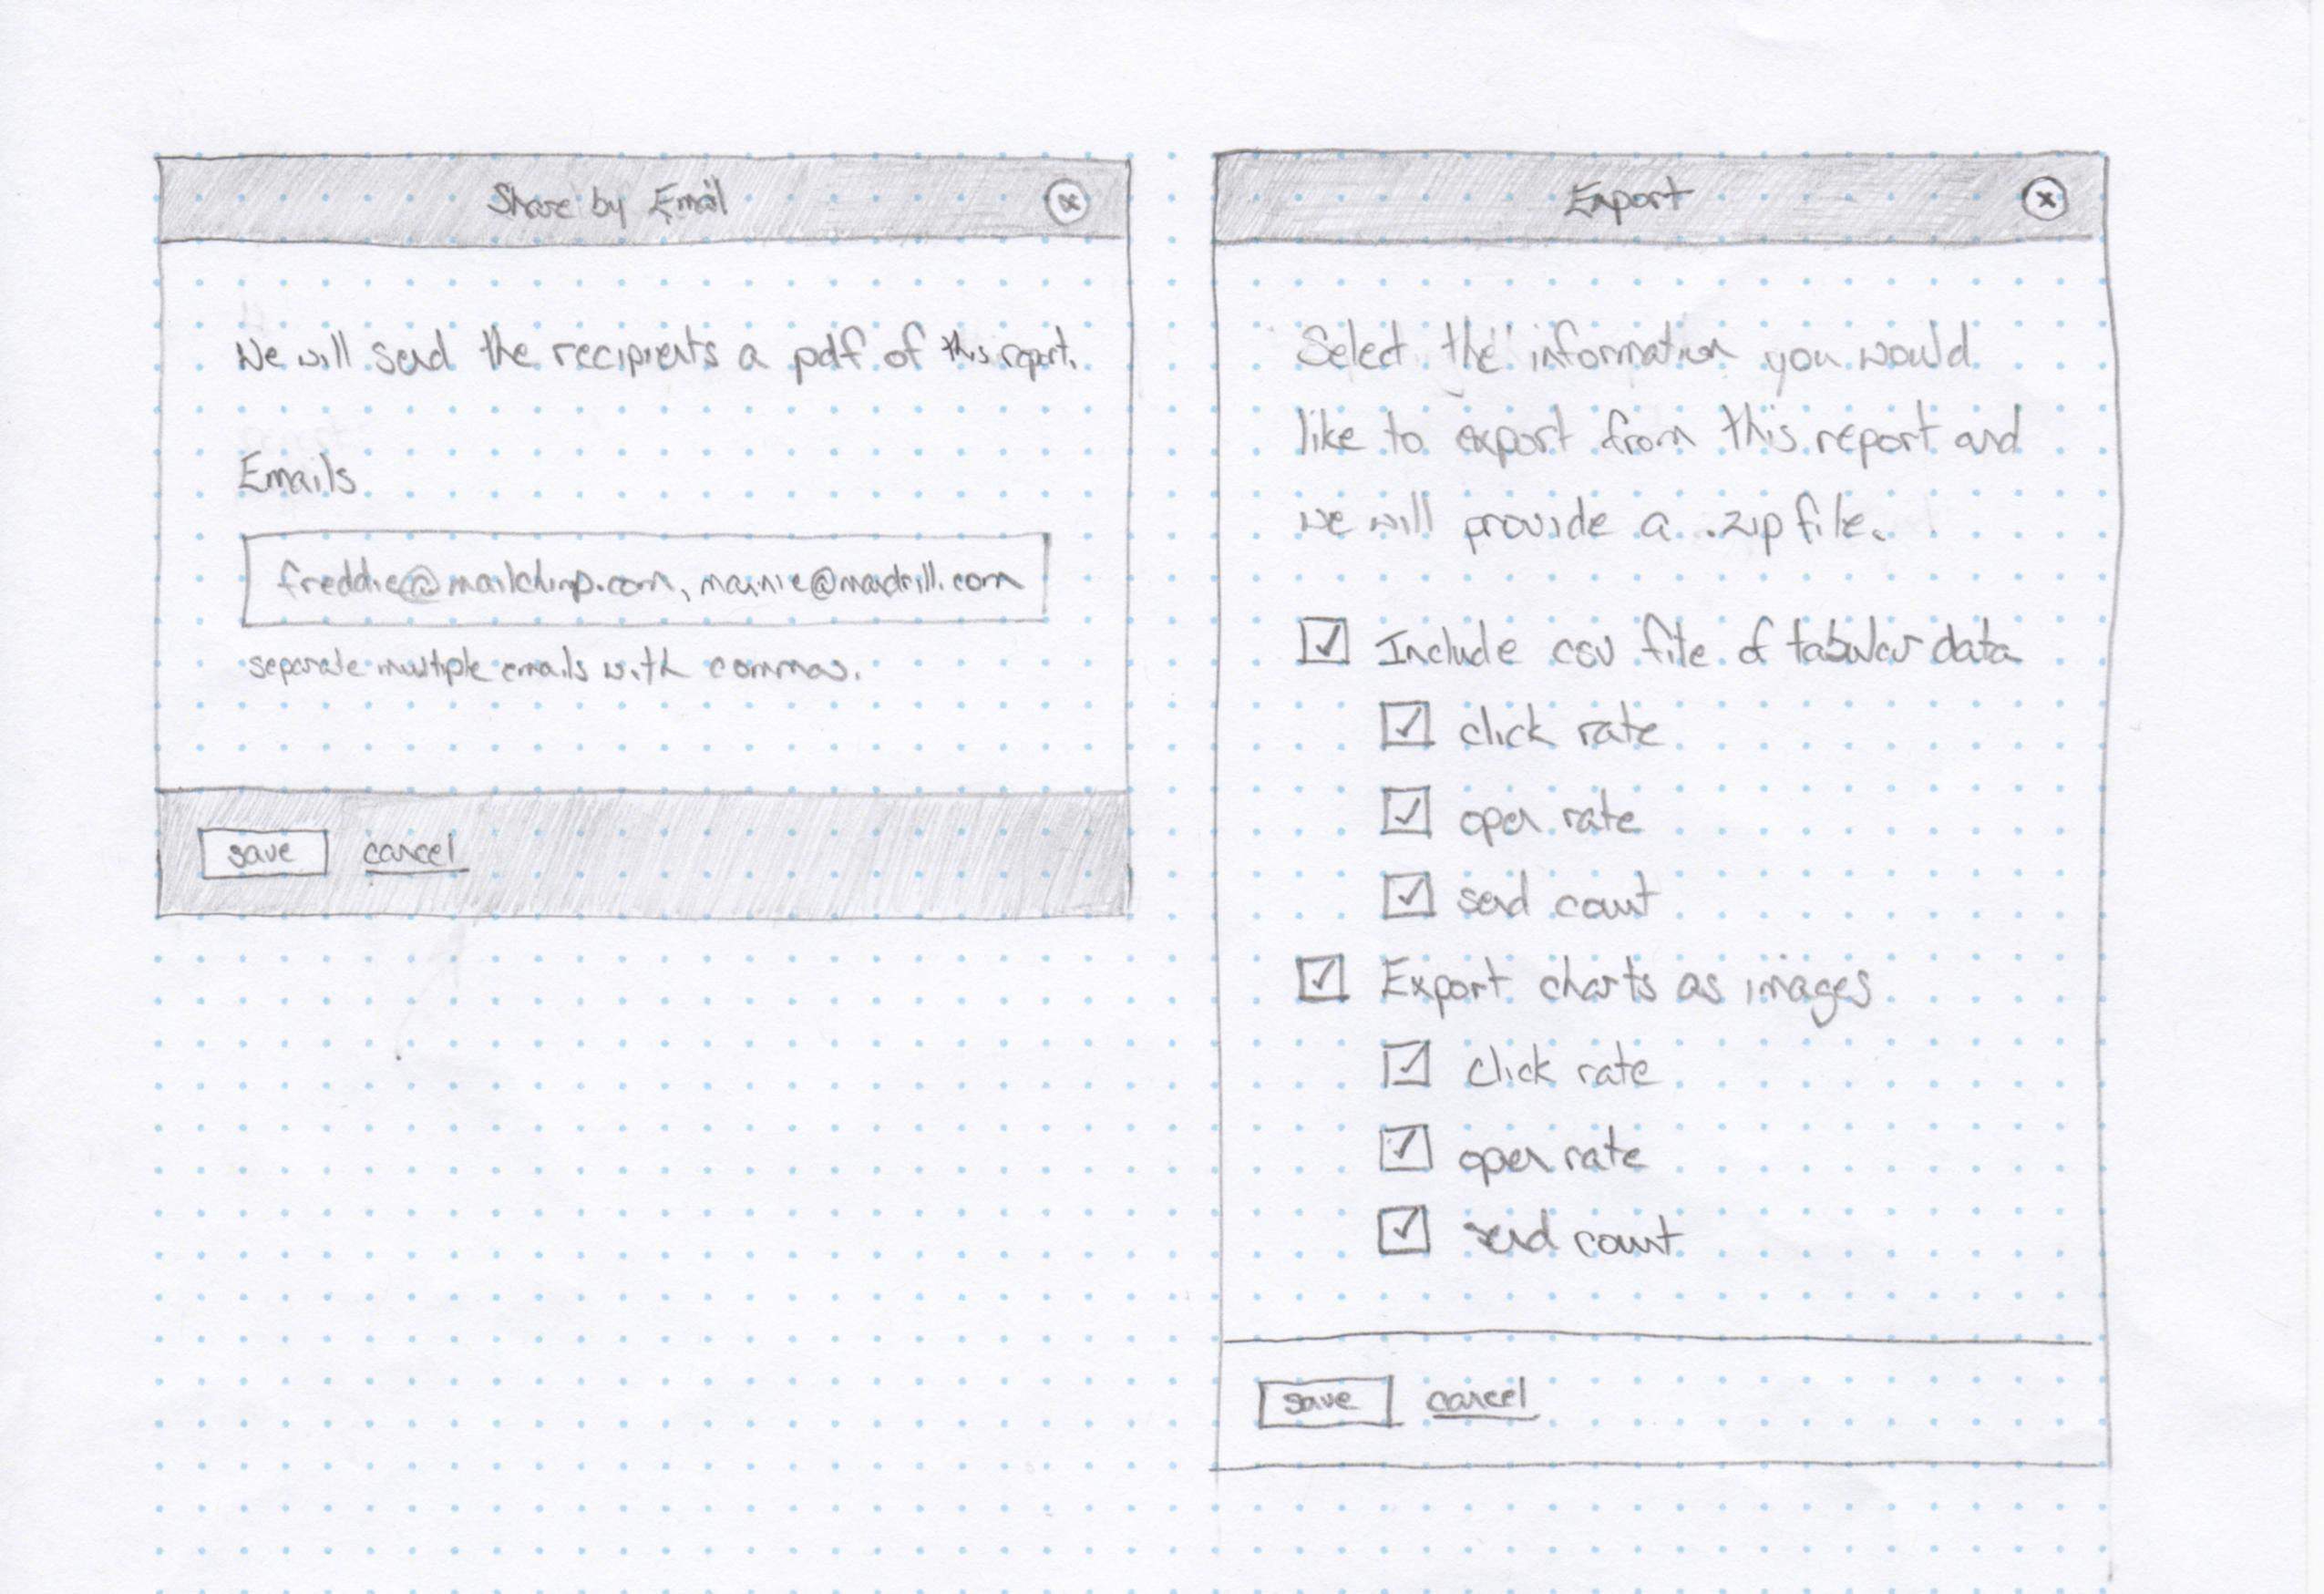 Share by Email
We will send the recipients a pdf of this report.
Emails
freddie@mailchimp.com, mannie@mandrill.com
separate multiple emails with commas.
save cancel
Export
Select the information you would
like to export from this report and
we will provide a .zip file.
Include csv file of tabular data
click rate
open rate
send count
Export charts as images
click rate
open rate
send count
save cancel